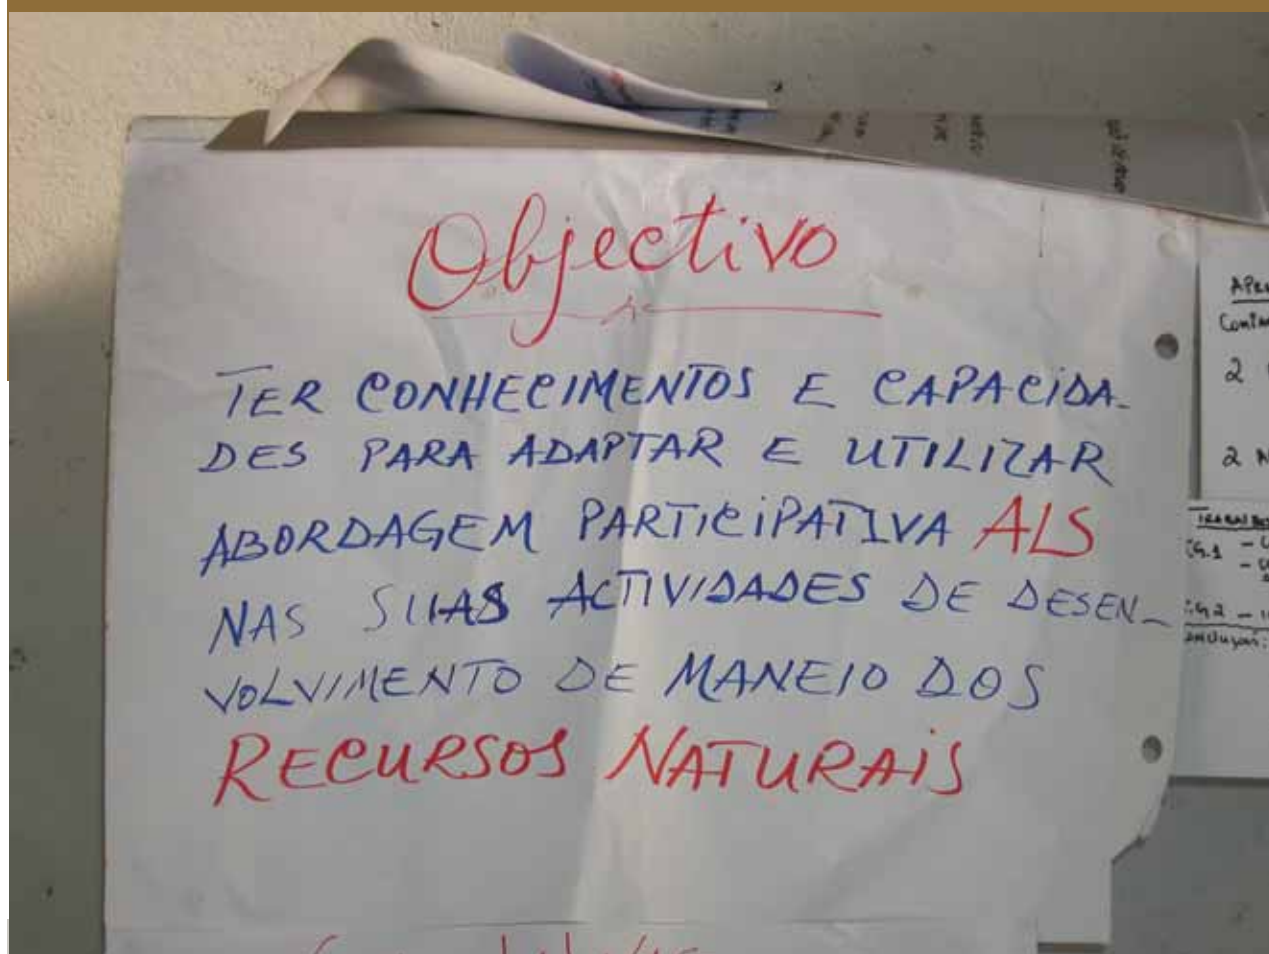 Objectivo
TER CONHECIMENTOS E CAPACIDA-
DES PARA ADAPTAR E UTILIZAR
ABORDAGEM PARTICIPATIVA ALS
NAS SUAS ACTIVIDADES DE DESEN-
VOLVIMENTO DE MANEIO DOS
RECURSOS NATURAIS
2
2 N